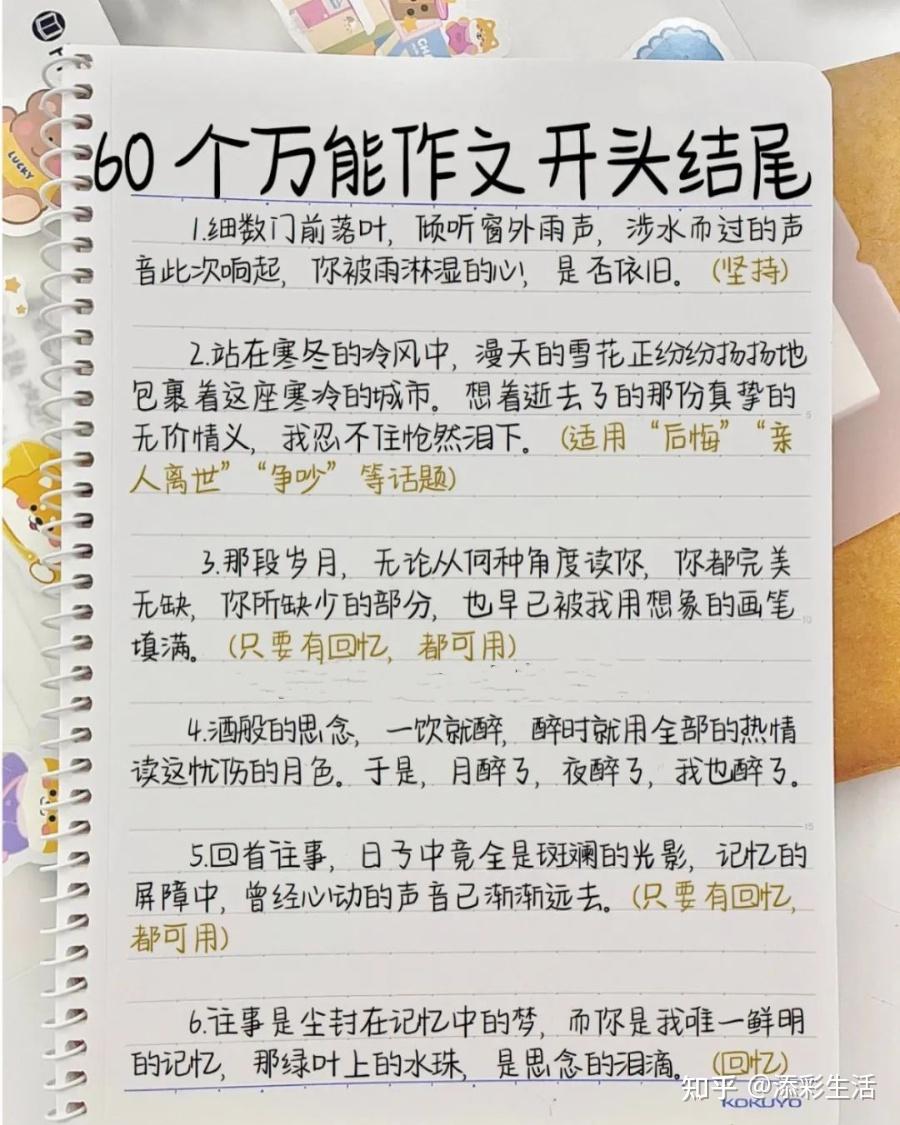 60个万能作文开头结尾
1.细数门前落叶，倾听窗外雨声，涉水而过的声
音此次响起，你被雨淋湿的心，是否依旧。（坚持）
2.站在寒冬的冷风中，漫天的雪花正纷纷扬扬地
包裹着这座寒冷的城市。想着逝去了的那份真挚的
无价情义，我忍不住怆然泪下。（适用“后悔”“亲
人离世”“争吵”等话题）
3.那段岁月，无论从何种角度读你，你都完美
无缺，你所缺少的部分，也早已被我用想象的画笔
填满。（只要有回忆，都可用）
4.酒般的思念，一饮就醉，醉时就用全部的热情
读这忧伤的月色。于是，月醉了，夜醉了，我也醉了。
5.回首往事，日子中竟全是斑斓的光影，记忆的
屏障中，曾经心动的声音已渐渐远去。（只要有回忆，
都可用）
6.往事是尘封在记忆中的梦，而你是我唯一鲜明
的记忆，那绿叶上的水珠，是思念的泪滴。（回忆）
知乎 @添彩生活
KOKUYO
LUCKY
5
10
15